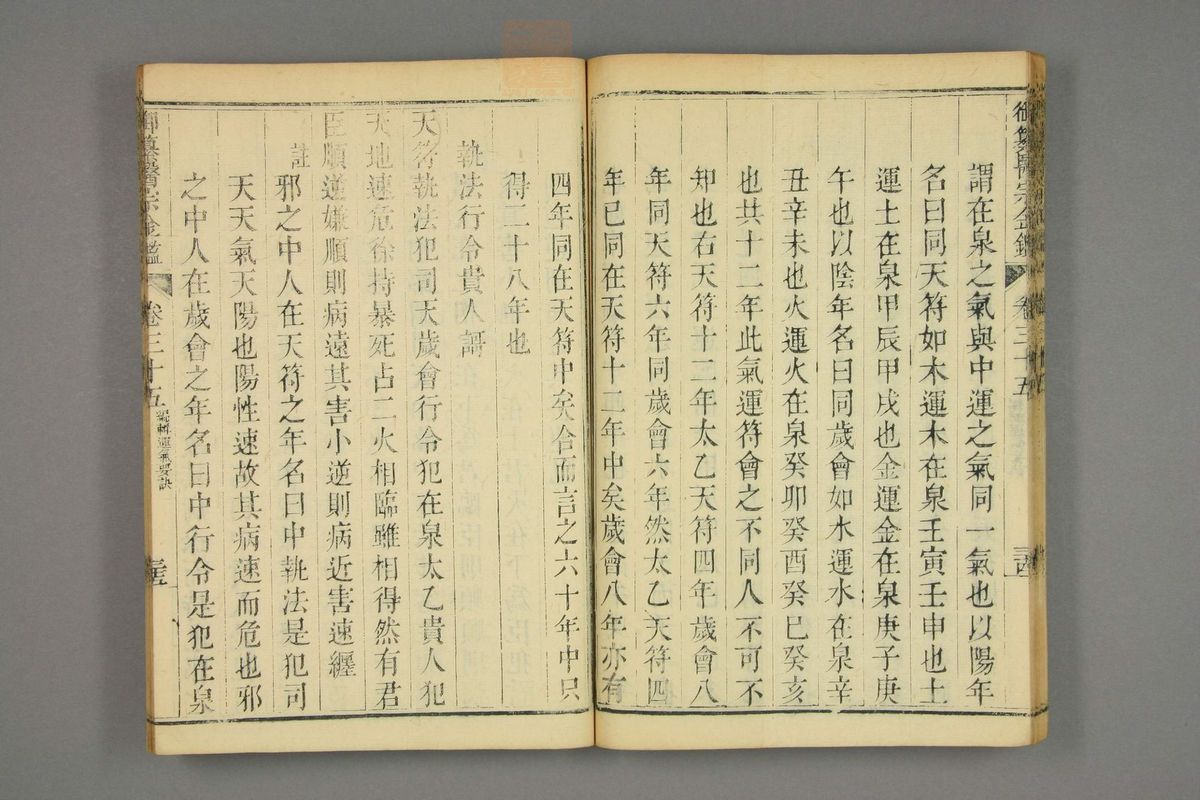 御纂醫宗金鑑 卷三十五
謂在泉之氣與中運之氣同一氣也以陽年
名曰同天符如木運木在泉壬寅壬申也土
運土在泉甲辰甲戌也金運金在泉庚子庚
午也以陰年名曰同歲會如水運水在泉辛
丑辛未也火運火在泉癸卯癸酉癸巳癸亥
也共十二年此氣運符會之不同人不可不
知也右天符十二年太乙天符四年歲會八
年同天符六年同歲會六年然太乙天符四
年已同在天符十二年中矣歲會八年亦有
四年同在天符中矣合而言之六十年中只
得二十八年也
執法行令貴人謌
天符執法犯司天歲會行令犯在泉太乙貴人犯
天地速危徐持暴死占二火相臨雖相得然有君
臣順逆嫌順則病遠其害小逆則病近害速纏
註 邪之中人在天符之年名曰中執法是犯司
天天氣天陽也陽性速故其病速而危也邪
之中人在歲會之年名曰中行令是犯在泉
御纂醫宗金鑑 卷三十五 編輯運氣要訣 三五